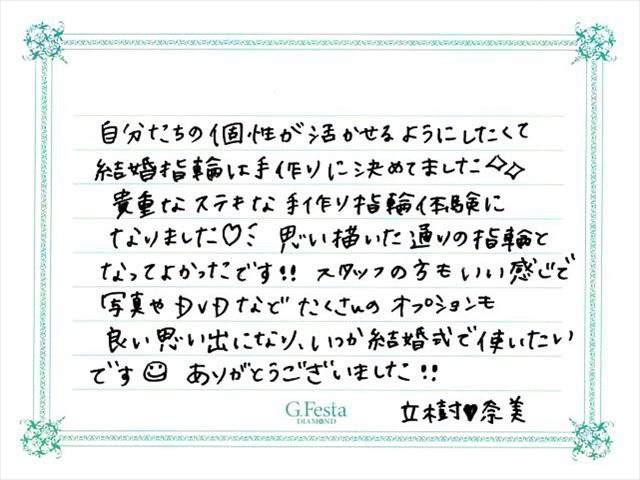 自分たちの個性が活かせるようにしたくて
結婚指輪は手作りに決めてました✧✧
貴重なステキな手作り指輪体験に
なりました♡ 思い描いた通りの指輪と
なってよかったです!! スタッフの方もいい感じで
写真やDVDなどたくさんのオプションも
良い思い出になり、いつか結婚式で使いたい
です☺ ありがとうございました!!
G.Festa
DIAMOND
立樹♥奈美